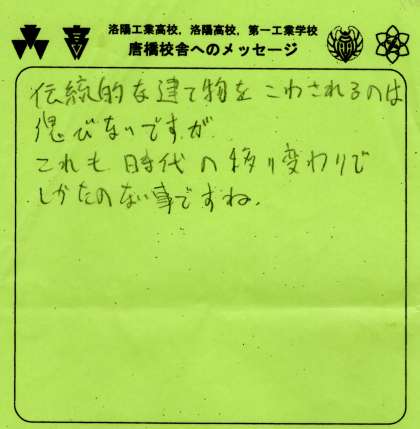 洛陽工業高校, 洛陽高校, 第一工業学校
唐橋校舎へのメッセージ
伝統的な建て物を こわされるのは
忍びないですが
これも 時代の移り変わりで
しかたのない事ですね.